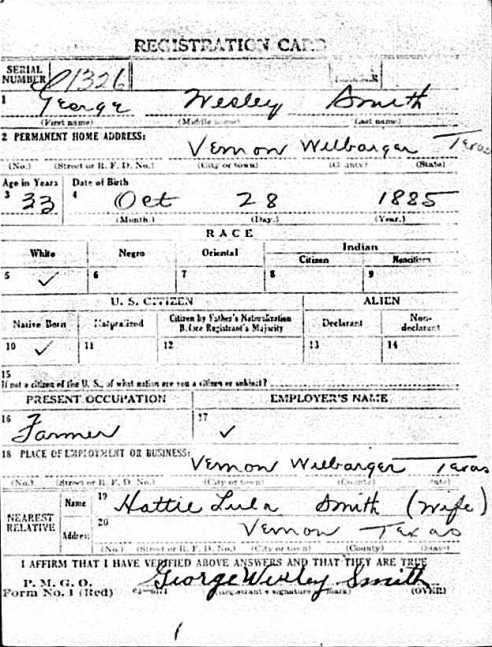 REGISTRATION CARD
SERIAL NUMBER 1326
1 George Wesley Smith
(First name) (Middle name) (Last name)
2 PERMANENT HOME ADDRESS:
Vernon Wilbarger Texas
(No.) (Street or R. F. D. No.) (City or town) (County) (State)
Age in Years Date of Birth
3 33 4 Oct 28 1885
(Month.) (Day.) (Year.)
RACE
White Negro Oriental Indian
Citizen Noncitizen
5 ✓ 6 7 8 9
U. S. CITIZEN ALIEN
Native Born Naturalized Citizen by Father's Naturalization Before Registrant's Majority Declarant Non-declarant
10 ✓ 11 12 13 14
15
If not a citizen of the U. S., of what nation are you a citizen or subject?
PRESENT OCCUPATION EMPLOYER'S NAME
16 Farmer 17 ✓
18 PLACE OF EMPLOYMENT OR BUSINESS:
Vernon Wilbarger Texas
(No.) (Street or R. F. D. No.) (City or town) (County) (State)
NEAREST RELATIVE Name 19 Hattie Lula Smith (Wife)
Address 20 Vernon Texas
(No.) (Street or R. F. D. No.) (City or town) (County) (State)
I AFFIRM THAT I HAVE VERIFIED ABOVE ANSWERS AND THAT THEY ARE TRUE
P. M. G. O.
Form No. 1 (Red) George Wesley Smith
(Registrant's signature or mark) (OVER)